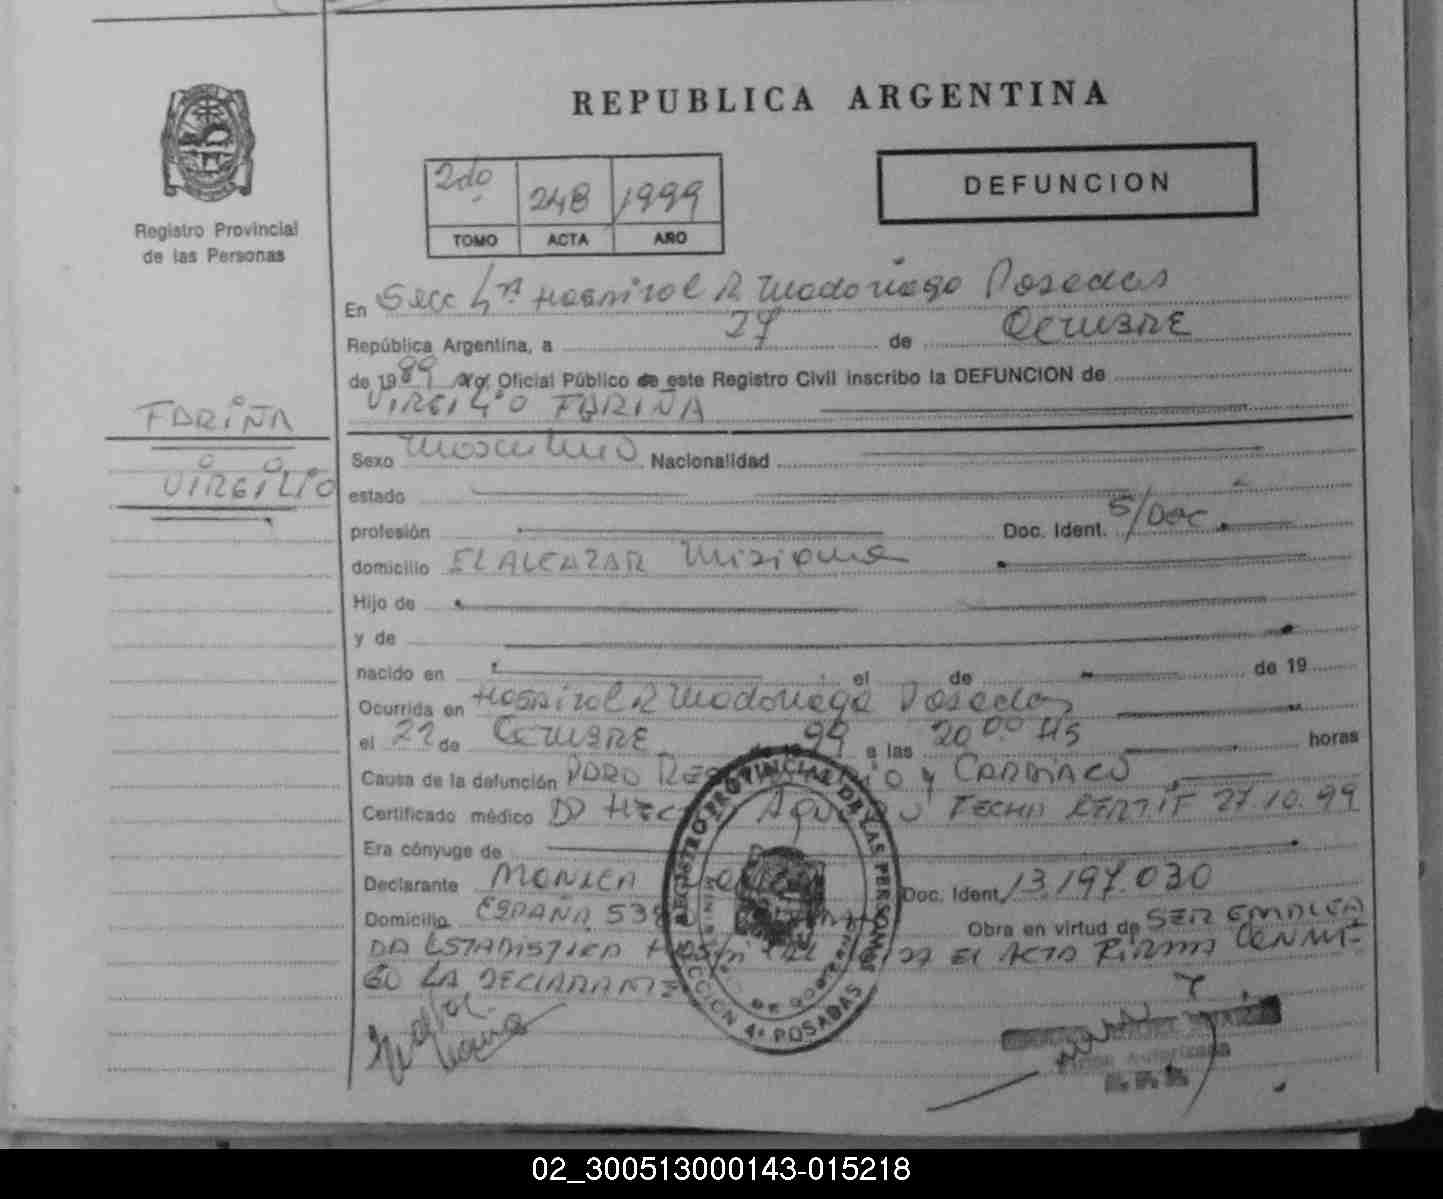 REPUBLICA ARGENTINA
Registro Provincial
de las Personas
2do 248 1999
TOMO ACTA AÑO
DEFUNCION
En Secc 4ta Hospital R Madariaga Posadas
República Argentina, a 27 de Octubre
de 1999 yo, Oficial Público de este Registro Civil inscribo la DEFUNCION de
VIRGILIO FARIÑA
FARIÑA
VIRGILIO
Sexo Masculino Nacionalidad
estado
profesión Doc. Ident. S/Doc
domicilio EL ALCAZAR Misiones
Hijo de
y de
nacido en el de de 19
Ocurrida en Hospital R Madariaga Posadas
el 22 de Octubre de 1999 a las 20 00 HS horas
Causa de la defunción PARO Y CARDIACO
Certificado médico DR FECHA 27.10.99
Era cónyuge de
Declarante MONICA Doc. Ident. 13.197.030
Domicilio ESPAÑA Obra en virtud de SER EMPLEA
DA ESTADISTICA EL ACTA FIRMA CONMI-
GO LA DECLARANTE
REGISTRO PROVINCIAL DE LAS PERSONAS
MINISTERIO DE GOBIERNO
SECCION 4ª POSADAS
Autorizada
02_300513000143-015218